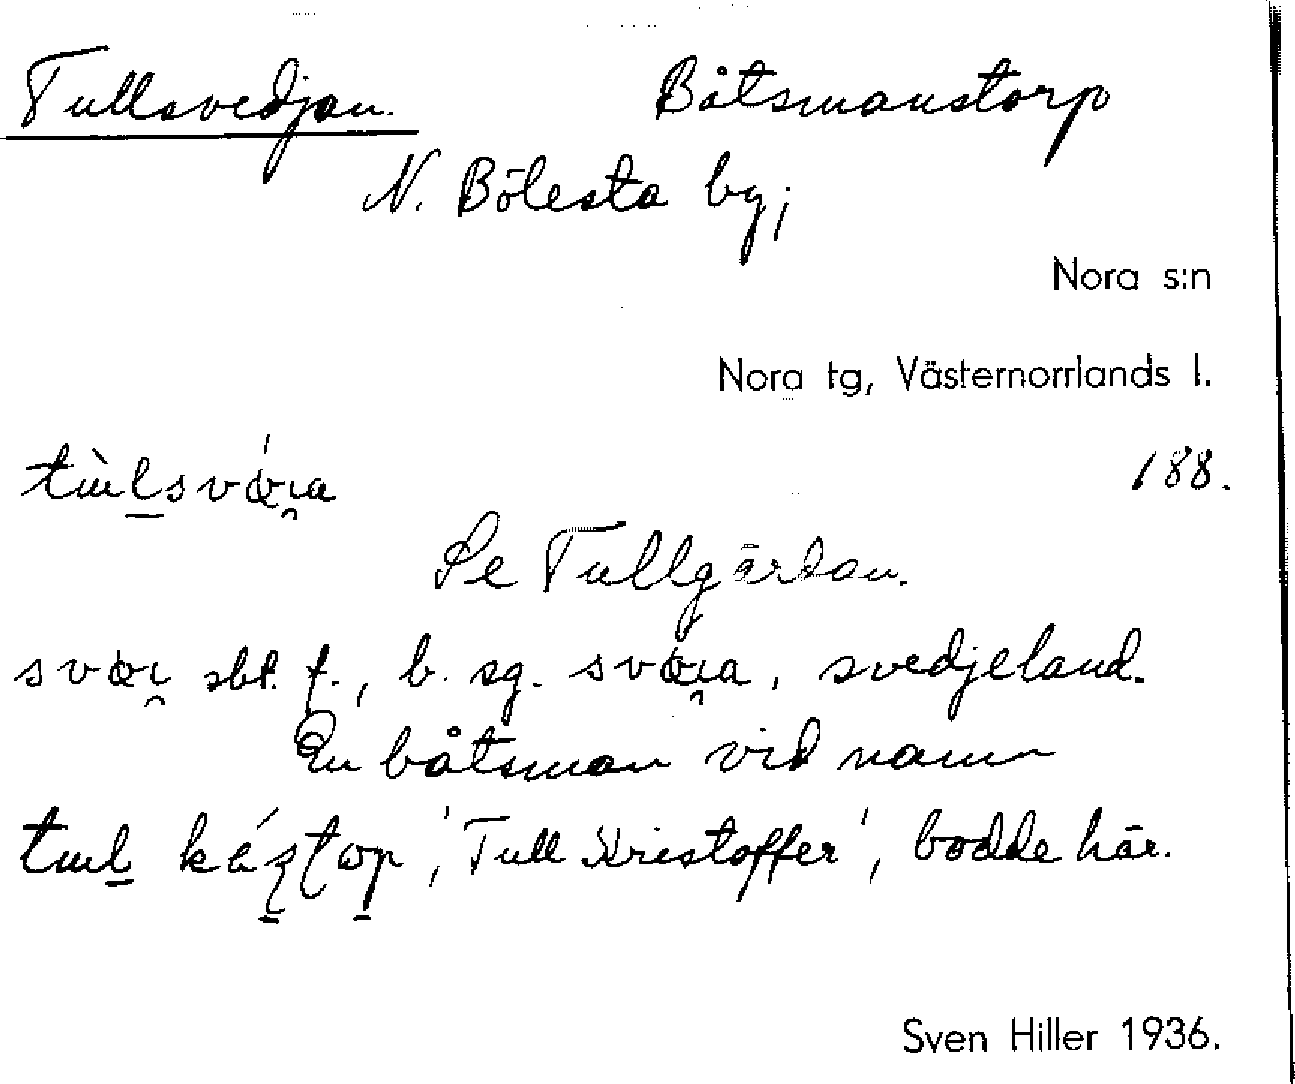 Tullsvedjan. Båtsmanstorp
N. Bölesta by;
Nora s:n
Nora tg, Västernorrlands l.
188.
Se Tullgärdan.
sbt. f., b. sg. svedjeland.
En båtsman vid namn
'Tull Kristoffer', bodde här.
Sven Hiller 1936.